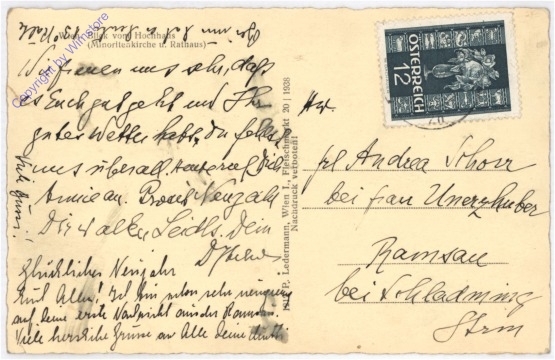 Wien, Blick vom Hochhaus
(Minoritenkirche u. Rathaus)
Wir freuen uns sehr, daß
es Euch gut geht und Ihr
gutes Wetter habt. Du fehlst
uns überall.
Prosit Neujahr
Dir u. allen Seidls. Dein
Glückliches Neujahr
Euch Allen! Ich bin schon sehr neugierig
auf Deine erste Nachricht aus der Ramsau.
Viele herzliche Grüsse an Alle Deine Mutti
Viele Grüsse!
P. Ledermann, Wien I., Fleischmarkt 20 | 1938
Nachdruck verboten!
ÖSTERREICH
12
Frl Andrea Schorr
bei Frau Unerzhuber
Ramsau
bei Schladming
Strm
Copyright by Winstore